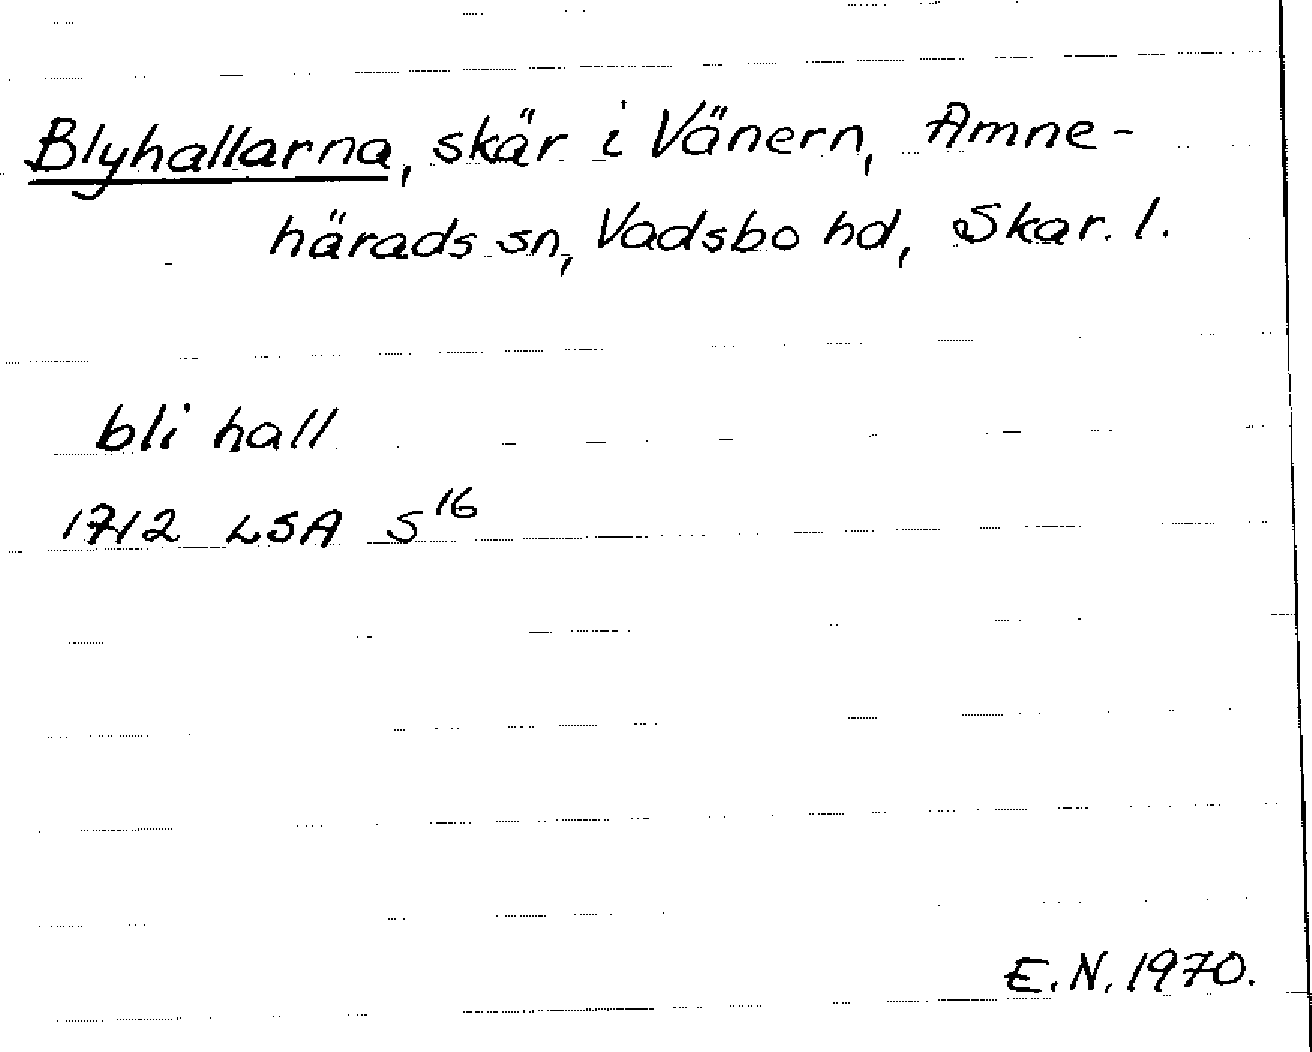 Blyhallarna, skär i Vänern, Amne-
härads sn, Vadsbo hd, Skar. l.
bli hall
1712 LSA S16
E.N. 1970.